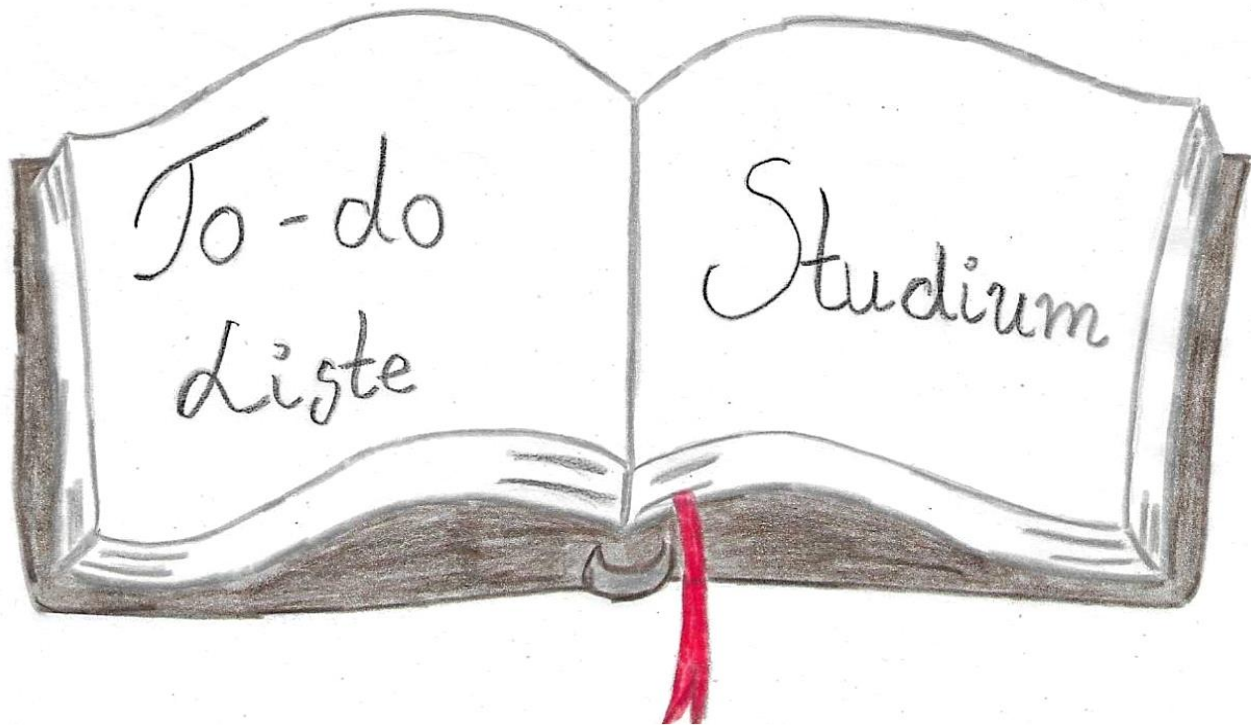 To-do
Liste
Studium